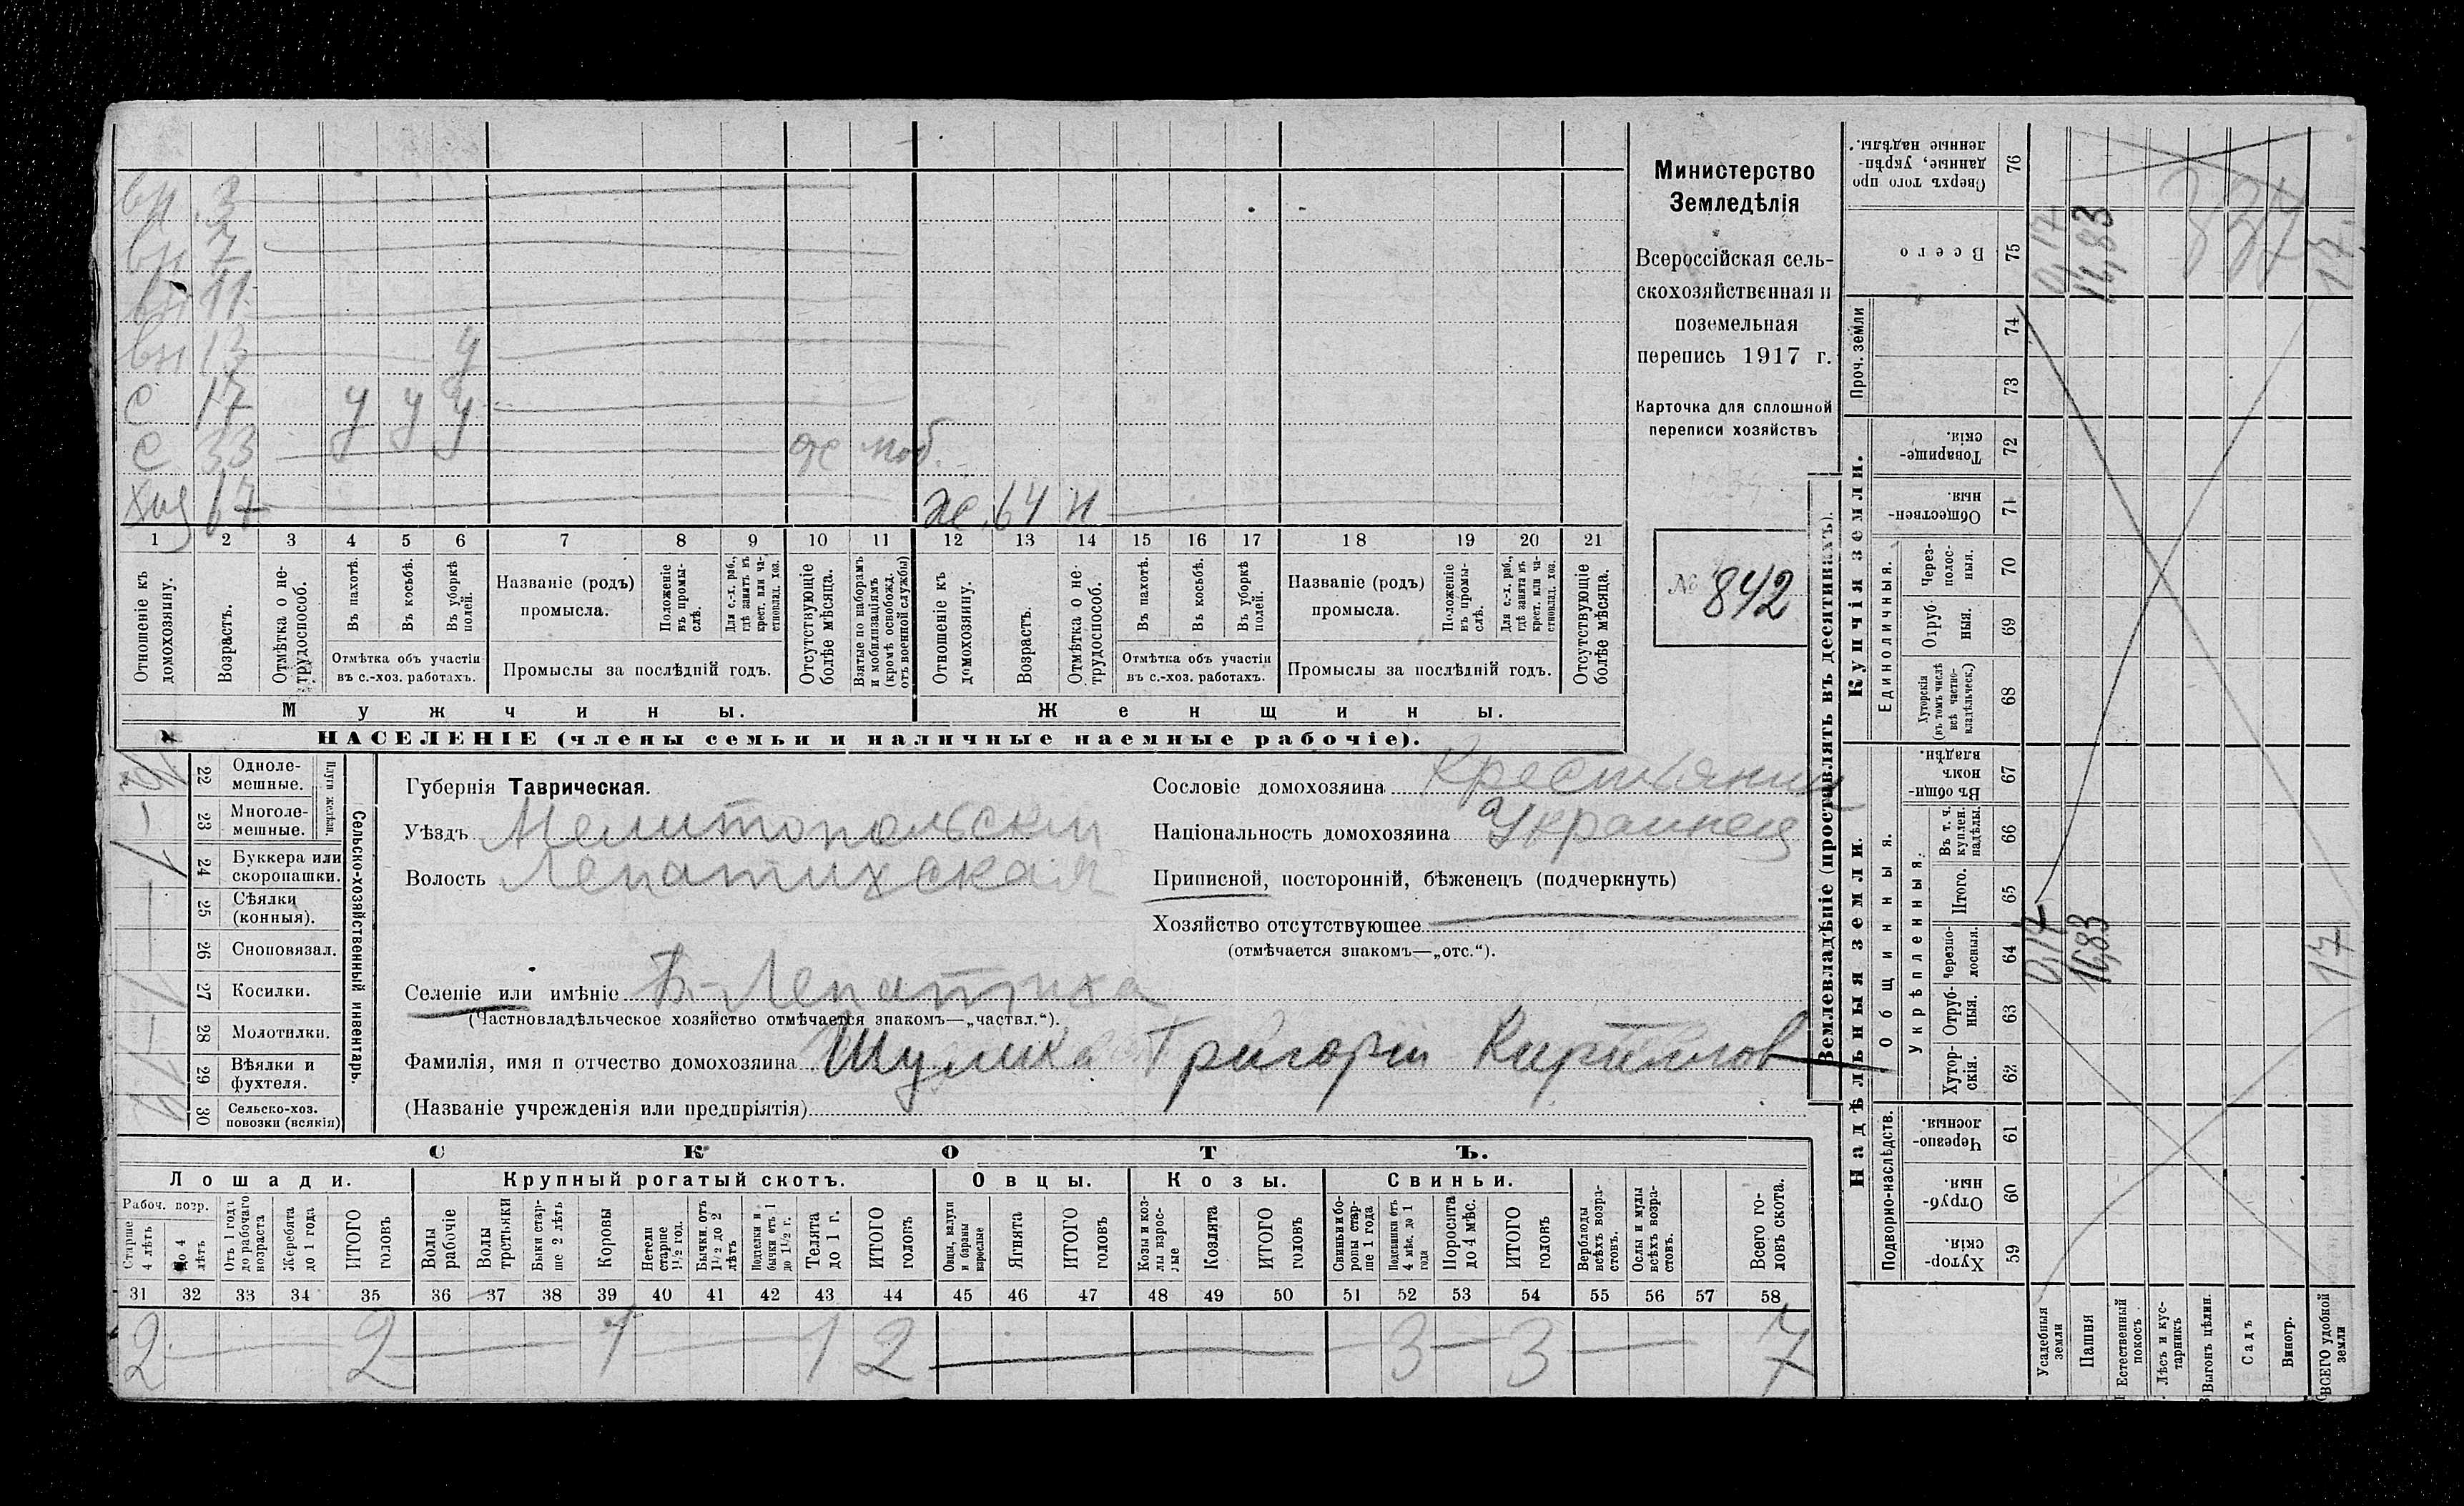 вн 3
вн 7
вн 11
вн 13 у
с 17 у у у
с 33 моб.
хоз 67 ж. 64 н
1 2 3 4 5 6 7 8 9 10 11 12 13 14 15 16 17 18 19 20 21
Отношеніе къ домохозяину.
Возрастъ.
Отмѣтка о не-трудоспособ.
Въ пахотѣ.
Въ косьбѣ.
Въ уборкѣ полей.
Отмѣтка объ участіи
въ с.-хоз. работахъ.
Названіе (родъ)
промысла.
Положеніе въ промы-слѣ.
Для с.-х. раб., гдѣ занятъ въ крест. или ча-стновлад. хоз.
Промыслы за послѣдній годъ.
Отсутствующіе болѣе мѣсяца.
Взятые по наборамъ и мобилизаціямъ (кромѣ освобожд. отъ военной службы)
Отношеніе къ домохозяину.
Возрастъ.
Отмѣтка о не-трудоспособ.
Въ пахотѣ.
Въ косьбѣ.
Въ уборкѣ полей.
Отмѣтка объ участіи
въ с.-хоз. работахъ.
Названіе (родъ)
промысла.
Положеніе въ промы-слѣ.
Для с.-х. раб., гдѣ занята въ крест. или ча-стновлад. хоз.
Промыслы за послѣдній годъ.
Отсутствующіе болѣе мѣсяца.
Мужчины. Женщины.
НАСЕЛЕНІЕ (члены семьи и наличные наемные рабочіе).
Министерство
Земледѣлія
Всероссійская сель-
скохозяйственная и
поземельная
перепись 1917 г.
Карточка для сплошной
переписи хозяйствъ
№ 842
22 Однолемешные.
23 Многолемешные.
Плуги желѣзн.
24 Буккера или скоропашки.
25 Сѣялки (конныя).
26 Сноповязал.
27 Косилки.
28 Молотилки.
29 Вѣялки и фухтеля.
30 Сельско-хоз. повозки (всякія)
Сельско-хозяйственный инвентарь.
Губернія Таврическая.
Уѣздъ Мелитопольскій
Волость Лепатихская
Селеніе или имѣніе Б-Лепатиха
(Частновладѣльческое хозяйство отмѣчается знакомъ—„частвл.“).
Фамилія, имя и отчество домохозяина Шулика Григорій Кириллов
(Названіе учрежденія или предпріятія)
Сословіе домохозяина Крестьянин
Національность домохозяина Украинец
Приписной, посторонній, бѣженецъ (подчеркнуть)
Хозяйство отсутствующее
(отмѣчается знакомъ—„отс.“).
СКОТЪ.
Лошади. Крупный рогатый скотъ. Овцы. Козы. Свиньи.
Рабоч. возр.
Старше 4 лѣтъ
До 4 лѣтъ
Отъ 1 года до рабочаго возраста
Жеребята до 1 года
ИТОГО головъ
Волы рабочіе
Волы третьяки
Быки стар-ше 2 лѣтъ
Коровы
Нетели старше 1½ год.
Бычки отъ 1½ до 2 лѣтъ
Подтелки и бычки отъ 1 до 1½ г.
Телята до 1 г.
ИТОГО головъ
Овцы, валухи и бараны взрослые
Ягнята
ИТОГО головъ
Козы и коз-лы взрос-лые
Козлята
ИТОГО головъ
Свиньи и бо-ровы стар-ше 1 года
Подсвинки отъ 4 мѣс. до 1 года
Поросята до 4 мѣс.
ИТОГО головъ
Верблюды всѣхъ возра-стовъ.
Ослы и мулы всѣхъ возра-стовъ.
Всего го-ловъ скота.
31 32 33 34 35 36 37 38 39 40 41 42 43 44 45 46 47 48 49 50 51 52 53 54 55 56 57 58
2 2 1 1 2 3 3 7
Землевладѣніе (проставлять въ десятинахъ).
Надѣльныя земли. Купчія земли.
Подворно-наслѣдств.
Общинныя.
Укрѣпленныя.
Единоличныя.
Проч. земли
Сверхъ того про-данные, укрѣп-ленные надѣлы. 76
Всего 75 0,17 16,83 17
74
73
Товарище-скія. 72
Обществен-ныя. 71
Через-полос-ныя. 70
Отруб-ныя. 69
Хуторскія (въ томъ числѣ всѣ частно-владѣльческ.) 68
Въ общи-номъ владѣн. 67
Въ т. ч. куплен. надѣлы 66
Итого. 65
Черезпо-лосныя. 64 0,17 16,83 17
Отруб-ныя. 63
Хутор-скія. 62
Черезпо-лосныя. 61
Отруб-ныя. 60
Хутор-скія. 59
337
Усадебныя земли
Пашня
Естественный покосъ
Лѣсъ и кус-тарникъ
Выгонъ цѣлин.
Садъ
Виногр.
ВСЕГО удобной земли